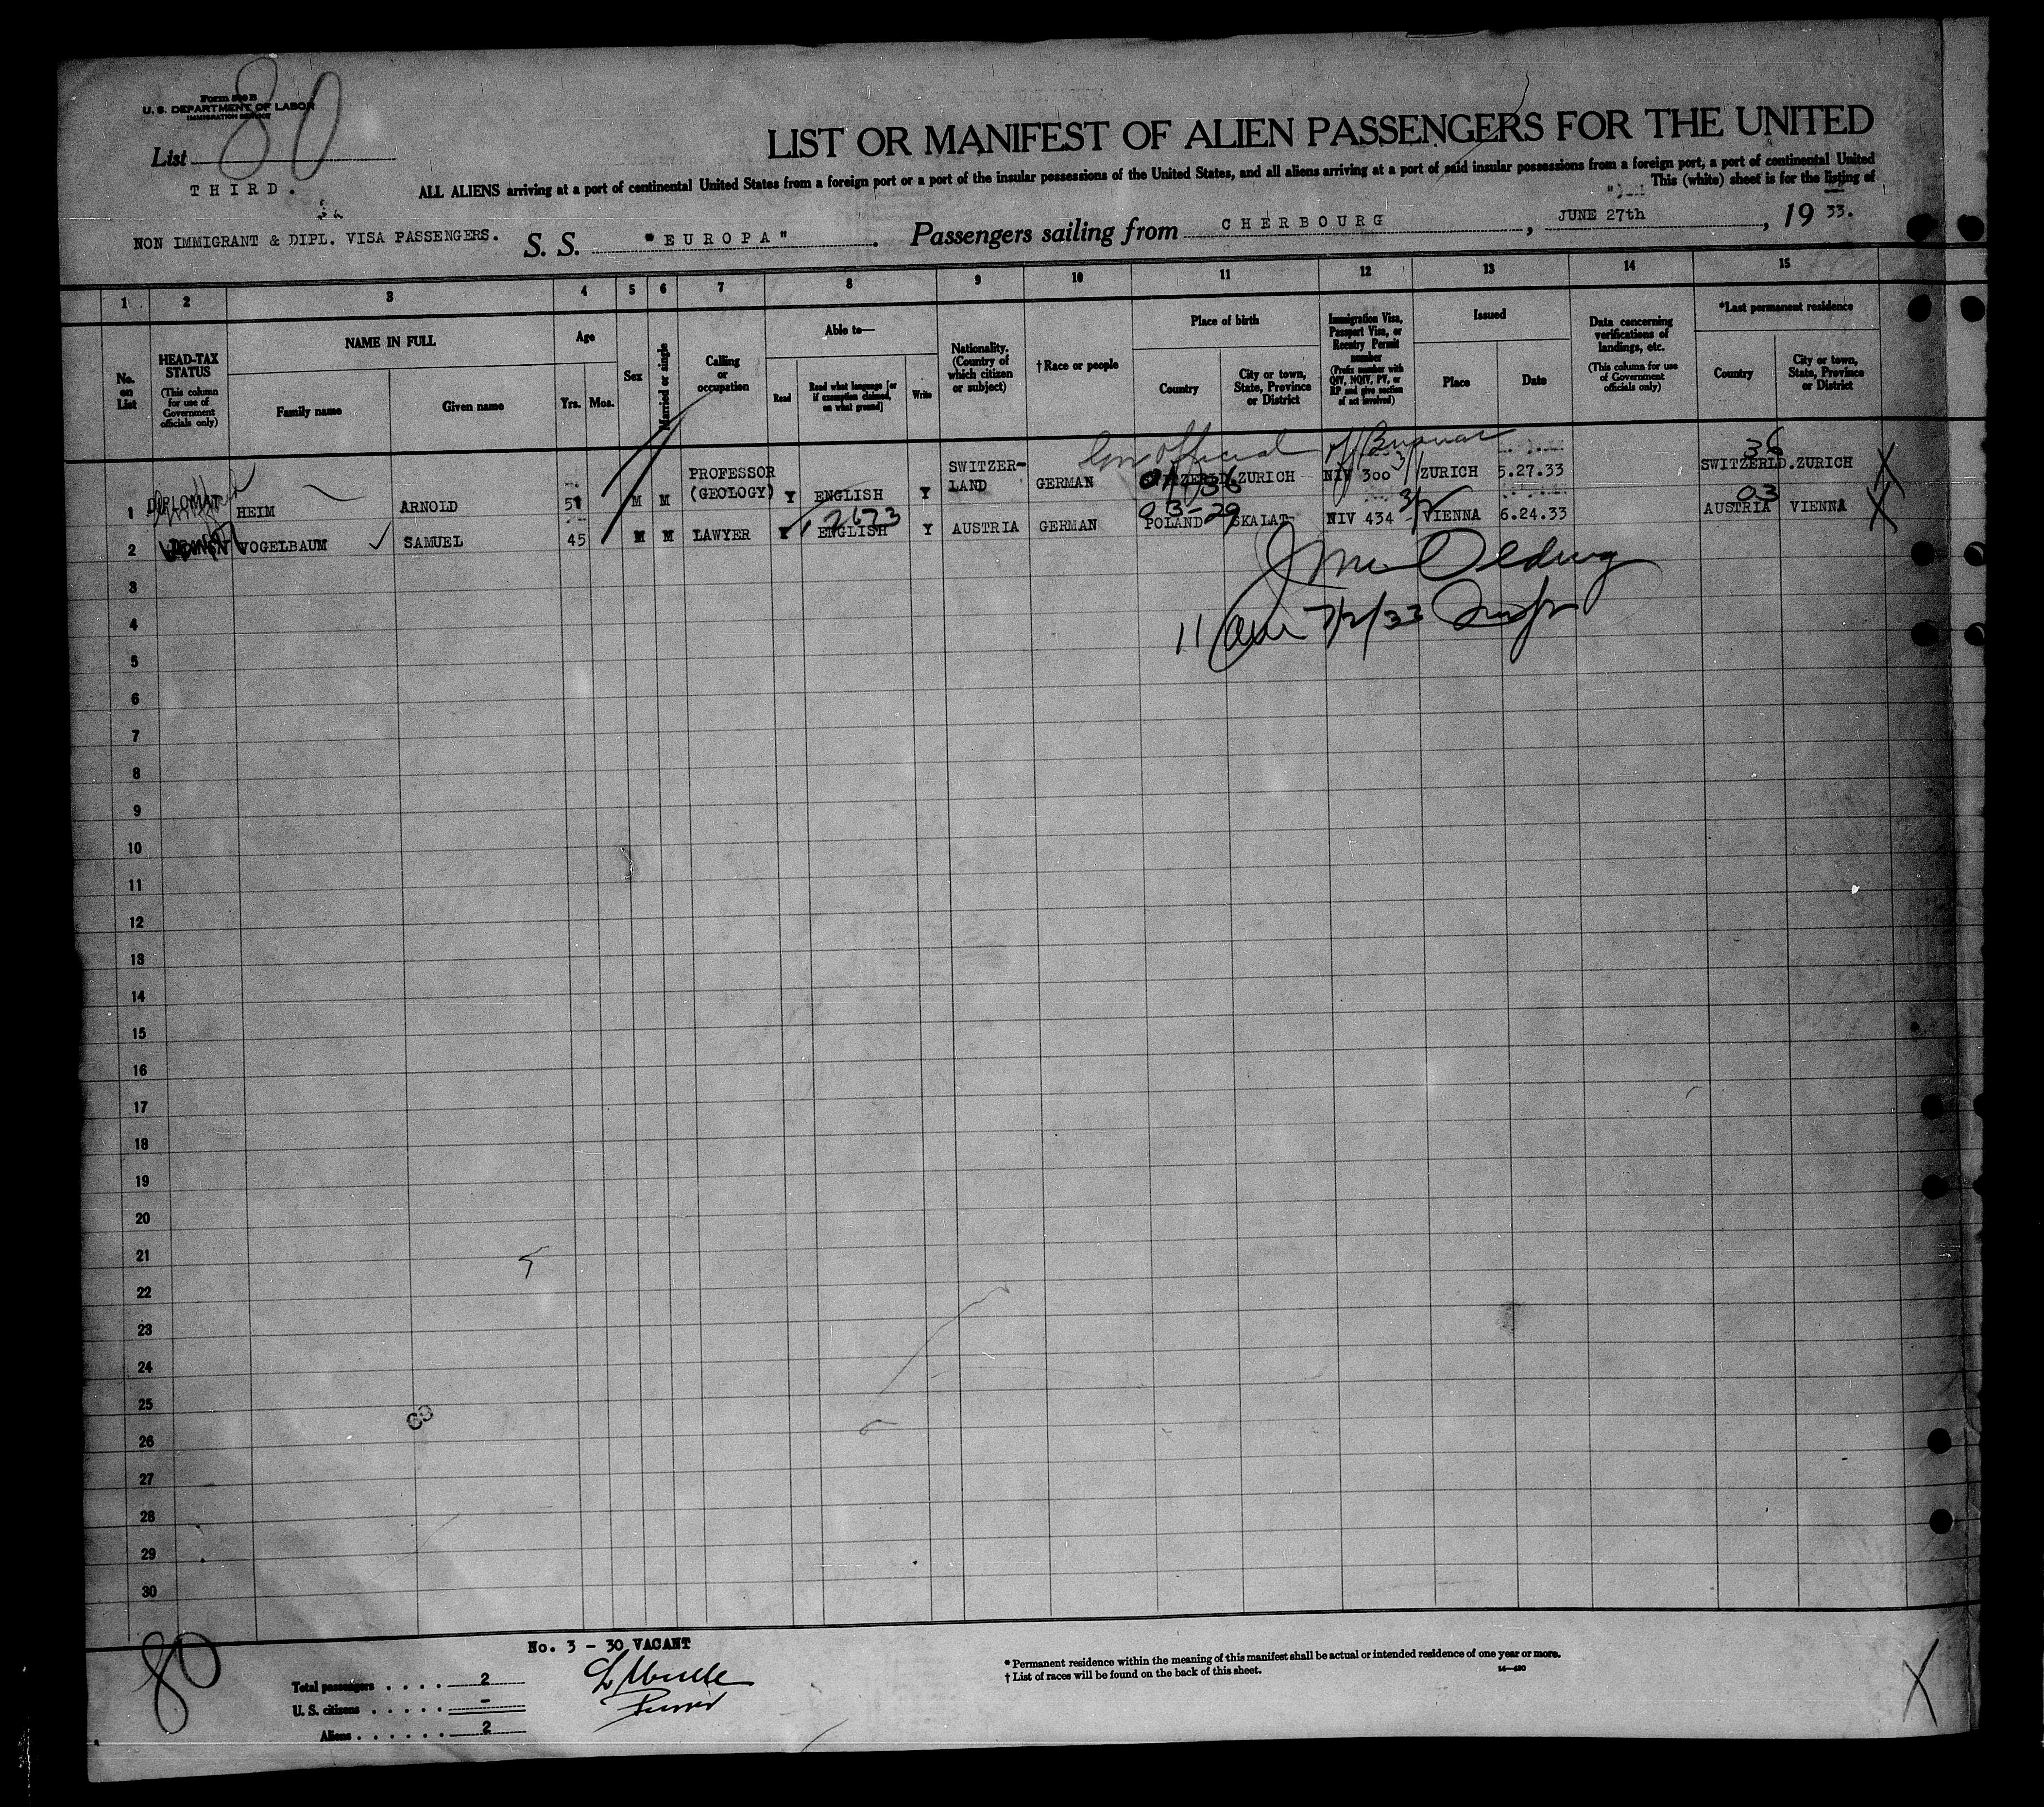 Form 500 B
U. S. DEPARTMENT OF LABOR
IMMIGRATION SERVICE
List 80
THIRD.
NON IMMIGRANT & DIPL. VISA PASSENGERS.
LIST OR MANIFEST OF ALIEN PASSENGERS FOR THE UNITED
ALL ALIENS arriving at a port of continental United States from a foreign port or a port of the insular possessions of the United States, and all aliens arriving at a port of said insular possessions from a foreign port, a port of continental United
This (white) sheet is for the listing of
S. S. "EUROPA" . Passengers sailing from CHERBOURG , JUNE 27th , 19 33.
1 2 3 4 5 6 7 8 9 10 11 12 13 14 15
No. on List
HEAD-TAX STATUS
(This column for use of Government officials only)
NAME IN FULL
Family name
Given name
Age
Yrs. Mos.
Sex
Married or single
Calling or occupation
Able to—
Read
Read what language [or if exemption claimed, on what ground]
Write
Nationality. (Country of which citizen or subject)
†Race or people
Place of birth
Country
City or town, State, Province or District
Immigration Visa, Passport Visa, or Reentry Permit number
(Prefix number with QIV, NQIV, PV, or RP and give section of act involved)
Issued
Place
Date
Data concerning verifications of landings, etc.
(This column for use of Government officials only)
*Last permanent residence
Country
City or town, State, Province or District
Official
36
1 DIPLOMAT HEIM ARNOLD 51 M M PROFESSOR (GEOLOGY) Y ENGLISH Y SWITZER-LAND GERMAN SWITZERLD. ZURICH NIV 300 3/1 ZURICH 5.27.33 SWITZERLD. ZURICH
03-29
03
2 VOGELBAUM SAMUEL 45 M M LAWYER Y ENGLISH Y AUSTRIA GERMAN POLAND SKALAT NIV 434 3/2 VIENNA 6.24.33 AUSTRIA VIENNA
3
4
11 7/2/33 Insp
5
6
7
8
9
10
11
12
13
14
15
16
17
18
19
20
21
22
23
24
25
26
27
28
29
30
80
No. 3 - 30 VACANT
Total passengers . . . . 2
U. S. citizens . . . . . -
Aliens . . . . . . 2
Purser
* Permanent residence within the meaning of this manifest shall be actual or intended residence of one year or more.
† List of races will be found on the back of this sheet.
14—430
X